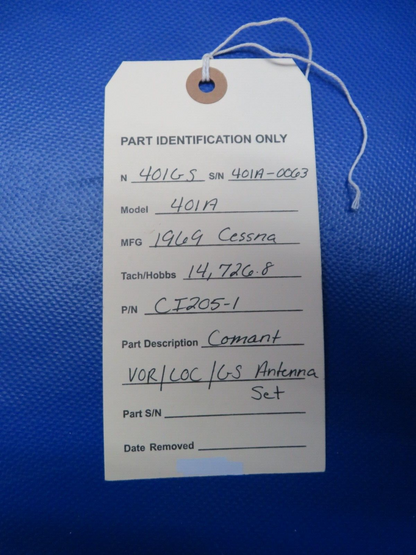 PART IDENTIFICATION ONLY
N 401GS S/N 401A-0063
Model 401A
MFG 1969 Cessna
Tach/Hobbs 14,726.8
P/N CI205-1
Part Description Comant
VOR/LOC/GS Antenna
Set
Part S/N
Date Removed